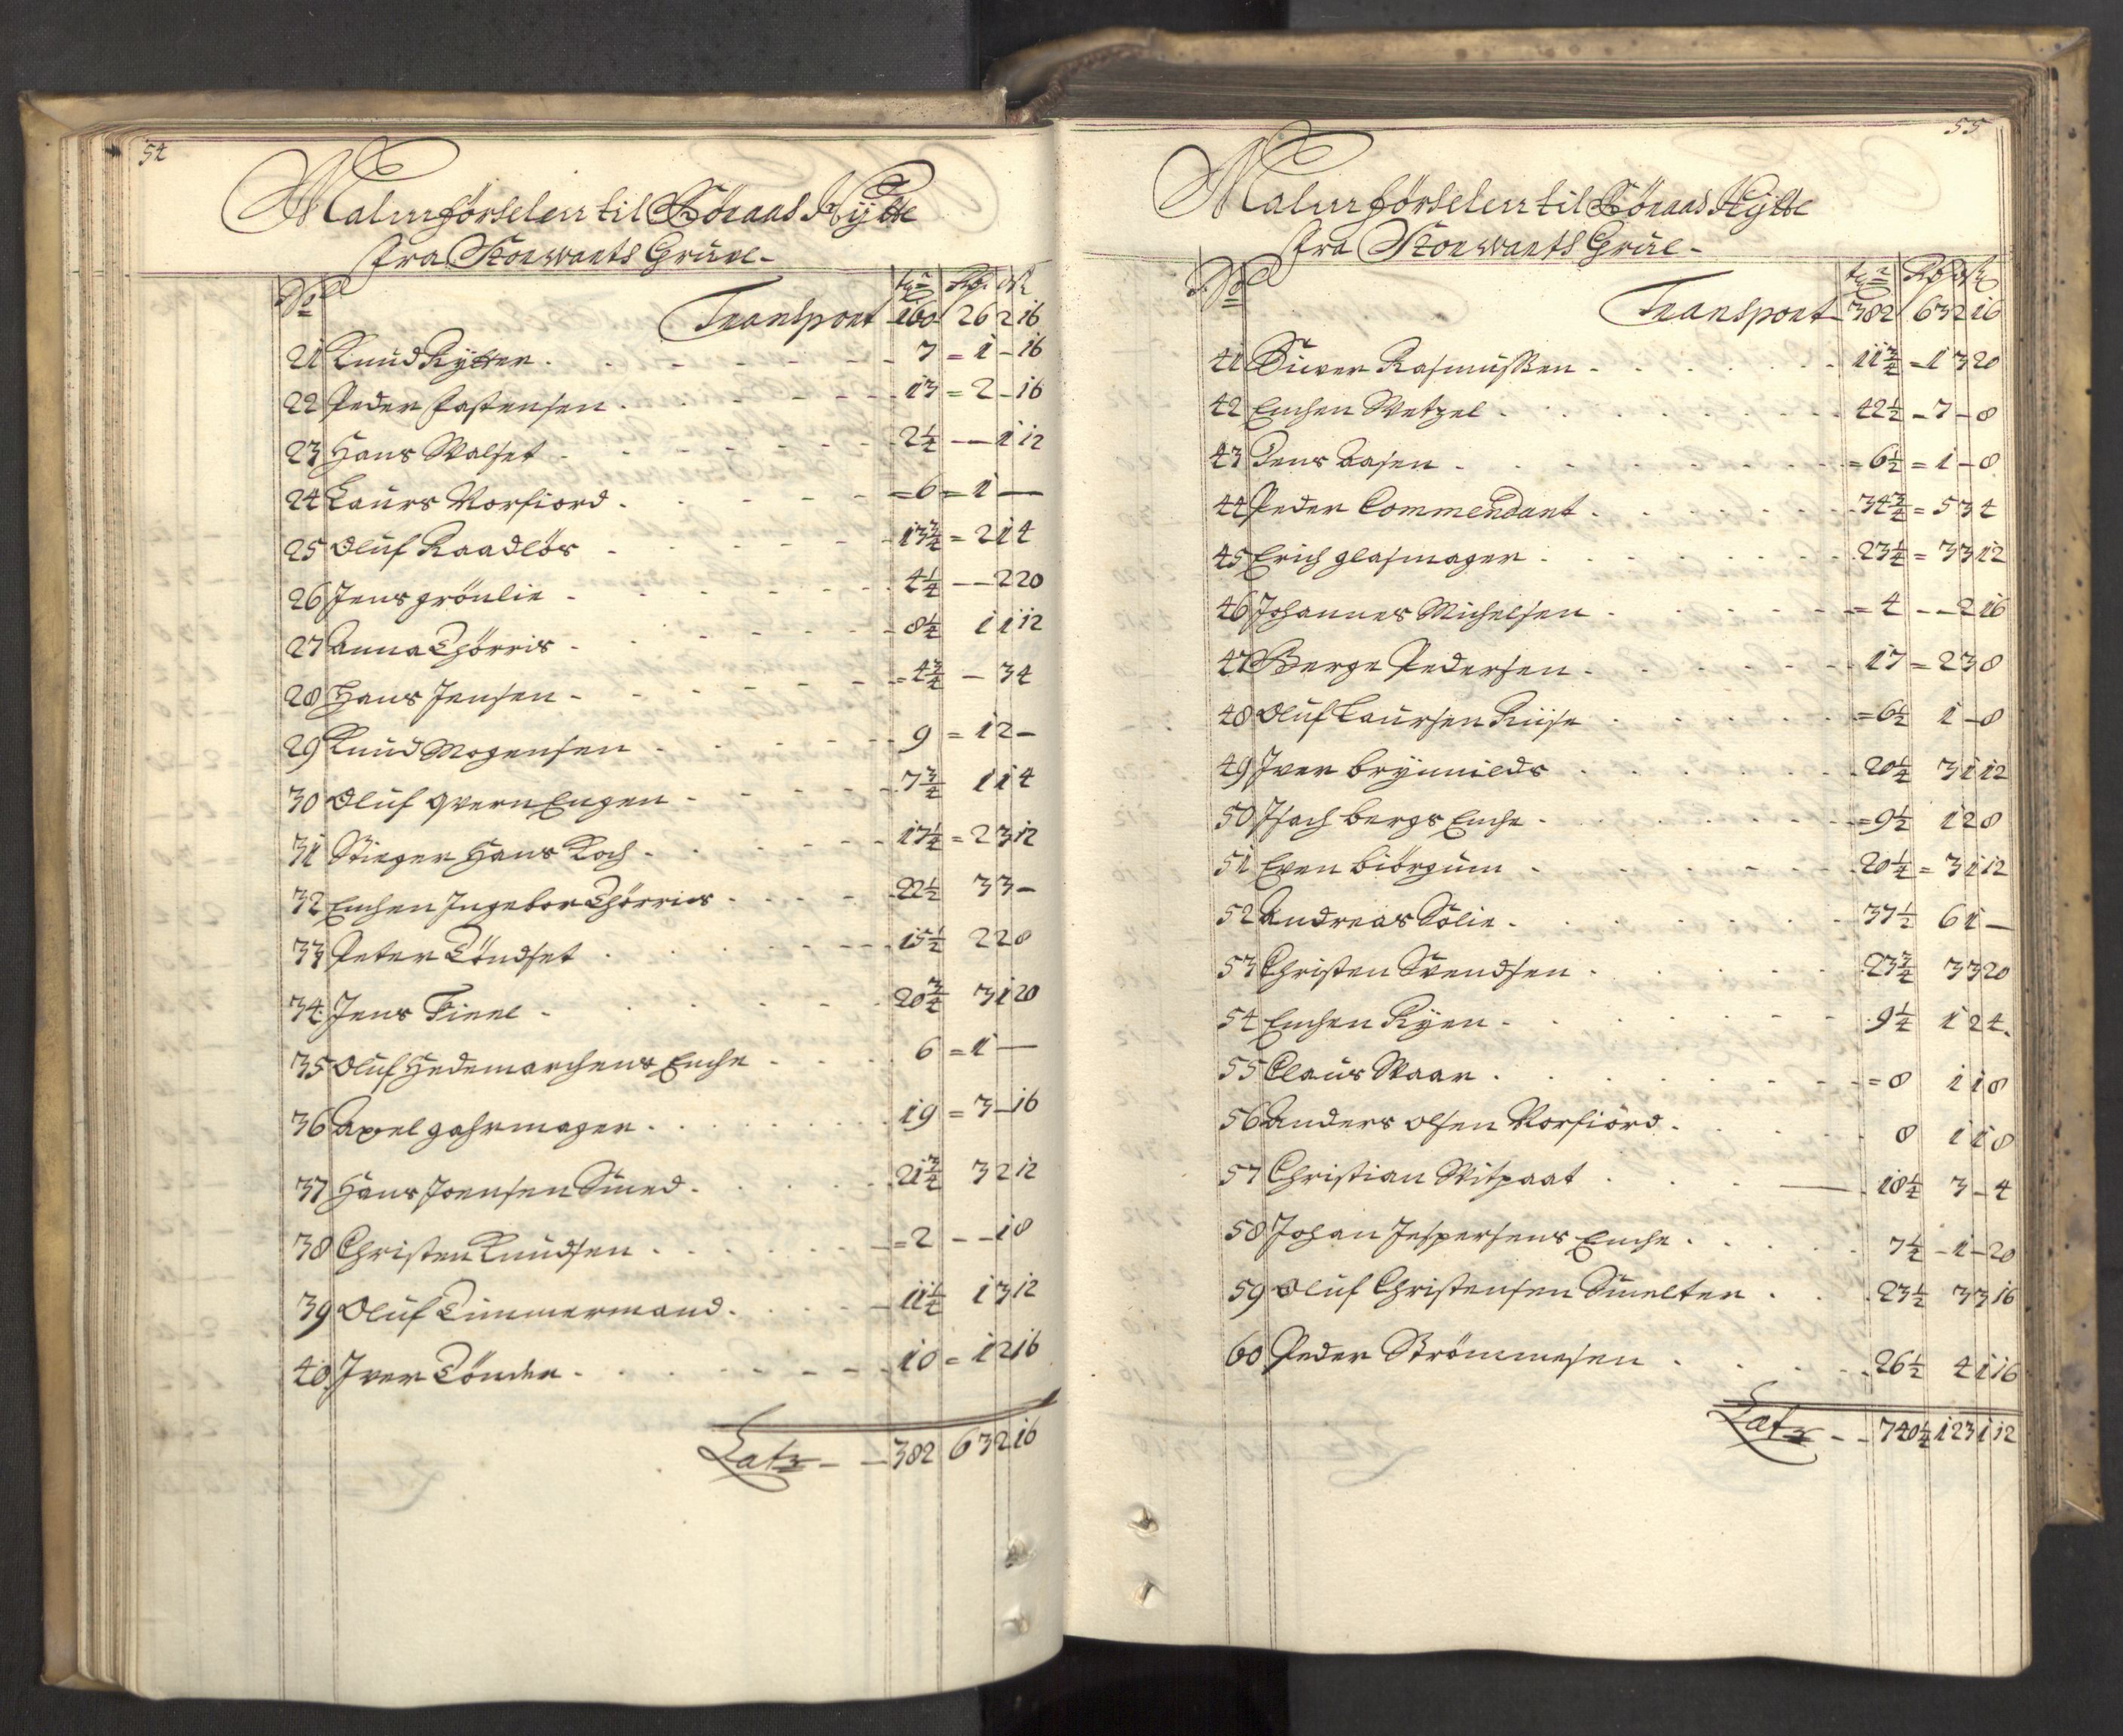 54
Malmförselen til Röraas Hÿtte
fra Storwarts Grüve-
No tr Rdr. ort s
Transport 160 26 2 16
21 Knud Rytter. 7 = 1 - 16
22 Peder Pastensen. 13 = 2 - 16
23 Hans Walset - 2¼ — 1 12
24 Laurs Norfiord. = 6 = 1 —
25 Oluf Raadlös - 13¾ = 2 1 4
26 Jens grönlie - 4¼ — 2 20
27 Anna Thörris - 8¼ 1 1 12
28 Hans Jensen - = 4¾ - 3 4
29 Knud Mogensen. 9 = 1 2 -
30 Oluf qvern Engen - 7¾ 1 1 4
31 Stieger Hans Koch. 17¼ = 2 3 12
32 Enchen Ingebor Thörries. 22½ 3 3 -
33 Peter Töndset. 15½ 2 2 8
34 Jens Finne - 20¾ 3 1 20
35 Oluf Hedemarchens Enche. 6 = 1 —
36 Axel gahrmager. 19 = 3 - 16
37 Hans Joensen Smed. 21¾ 3 2 12
38 Christen Knudsen. = 2 - - 1 8
39 Oluf Timmermand. 11¼ 1 3 12
40 Iver Tönder. 10 = 1 2 16
Latz - - 382 63 2 16
55
Malmförselen til Röraas Hÿtte
fra Storwarts Grüe-
No tr Rdr ort s
Transport 382 63 2 16
41 Siver Rasmüssen - 11¾ = 1 3 20
42 Enchen Wetzel. 42½ = 7 - 8
43 Jens Aasen. = 6½ = 1 - 8
44 Peder Commendant. 34¾ = 5 3 4
45 Erich glasmager. 23¼ = 3 3 12
46 Johannes Michelsen. = 4 - - 2 16
47 Berge Pedersen. 17 = 2 3 8
48 Oluf Laursen Riise. = 6½ 1 - 8
49 Iver brÿnnilds. 20¼ 3 1 12
50 Isach bergs Enche. = 9½ 1 2 8
51 Even biörgum. 20¼ = 3 1 12
52 Andreas Solie. 37½ 6 1 —
53 Christen Svendsen. 23¾ 3 3 20
54 Enchen Ryen. 9¼ 1 2 4.
55 Claus Waar. = 8 1 1 8
56 Anders olsen Norfiord. 8 1 1 8
57 Christian Witzaat. 18¼ 3 - 4
58 Johan Jespersens Enche. 7¼ - 1 - 20
59 Oluf Christensen Smelter. 23½ 3 3 16
60 Peder Strömmesen. 26½ 4 1 16
Latz - - 740¼ 123 1 12